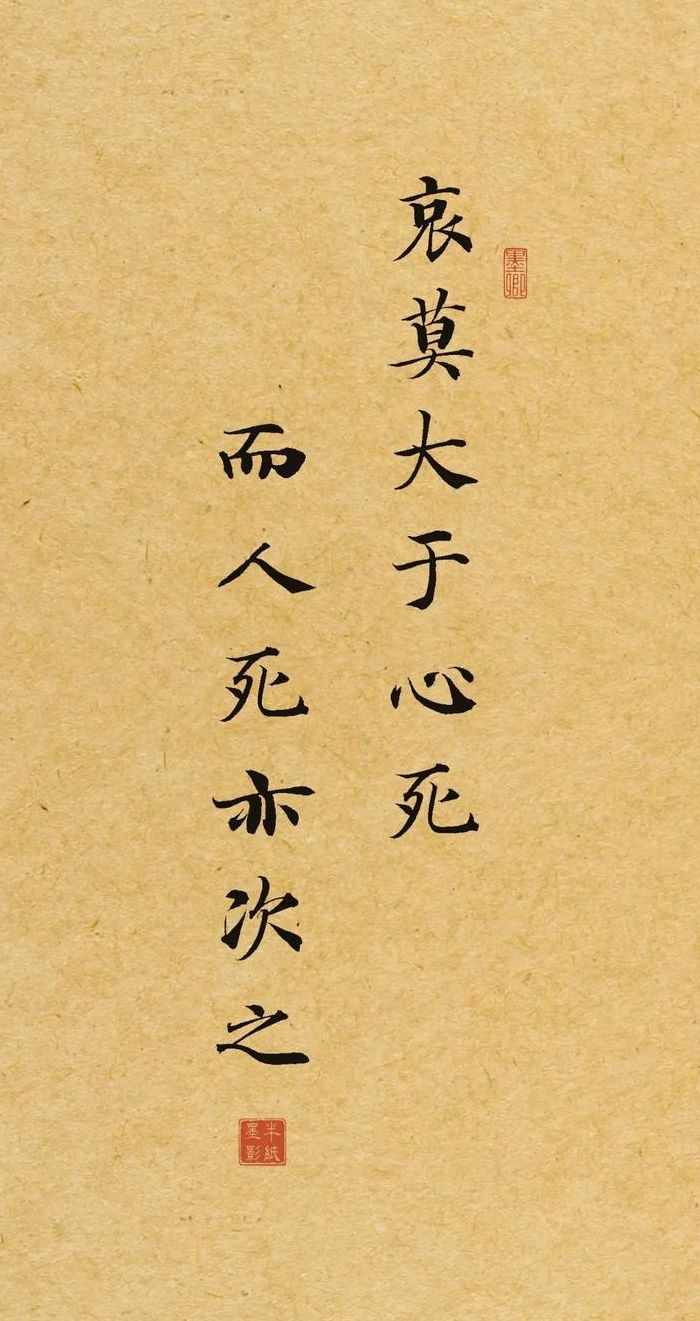 哀莫大于心死
墨卿
而人死亦次之
半纸墨影